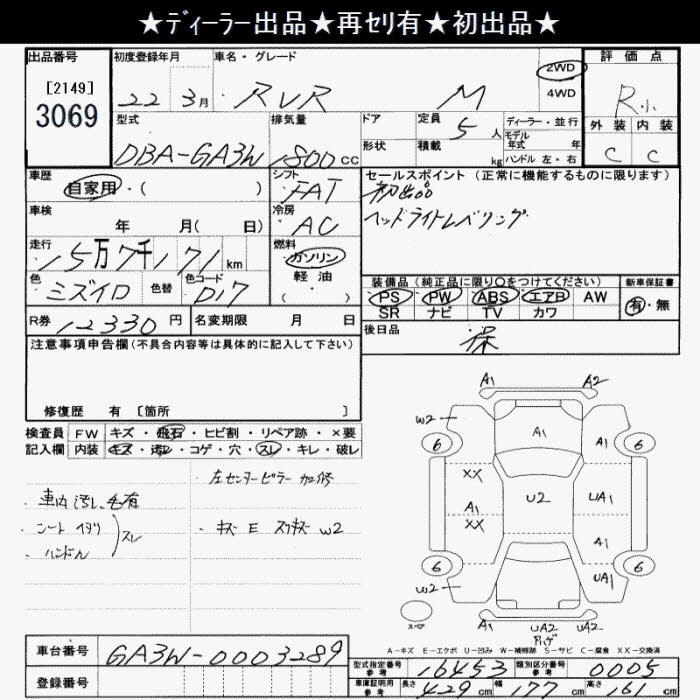 ★ﾃﾞｨｰﾗｰ出品★再ｾﾘ有★初出品★
出品番号 初度登録年月 車名・グレード 評価点
[2149] 3069
22 3月 RVR M 2WD 4WD R小
型式 排気量 ドア 定員 ディーラー・並行 外装 内装
DBA-GA3W 1800cc 形状 積載 5人 kg モデル年式 年 ハンドル 左・右 C C
車歴 シフト セールスポイント（正常に機能するものに限ります）
自家用・（ ） FAT 初出品
車検 冷房 ヘッドライトレベリング
年 月（ 日） AC
走行 燃料
15万7千171km ガソリン
色 色替 色コード 軽油
ミズイロ D17 （ ）
装備品（純正品に限り○をつけてください） 新車保証書
PS PW ABS エアB AW 有・無
SR ナビ TV カワ
R券 12330円 名変期限 月 日 後日品 保
注意事項申告欄（不具合内容等は具体的に記入して下さい）
修復歴 有 [箇所 ]
検査員 FW キズ・飛石・ヒビ割・リペア跡・×要
記入欄 内装 キズ・汚レ・コゲ・穴・スレ・キレ・破レ
左センターピラー 加修
・車内汚レ 毛有
・シート
・ハンドル スレ
・キズ E スリキズ W2
A1 A2
W2 A1 A1
6 6
XX
A1 U2 UA1
XX
A1
6 UA1 6
W2
スペア A1 UA2 UA2
A-キズ E-エクボ U-凹み W-補修跡 S-サビ C-腐食 XX-交換済
車台番号 GA3W-0003289
登録番号
型式指定番号 参考 16453 類別区分番号 参考 0005
車庫証明用 参考 長さ 429cm 幅 177cm 高さ 161cm